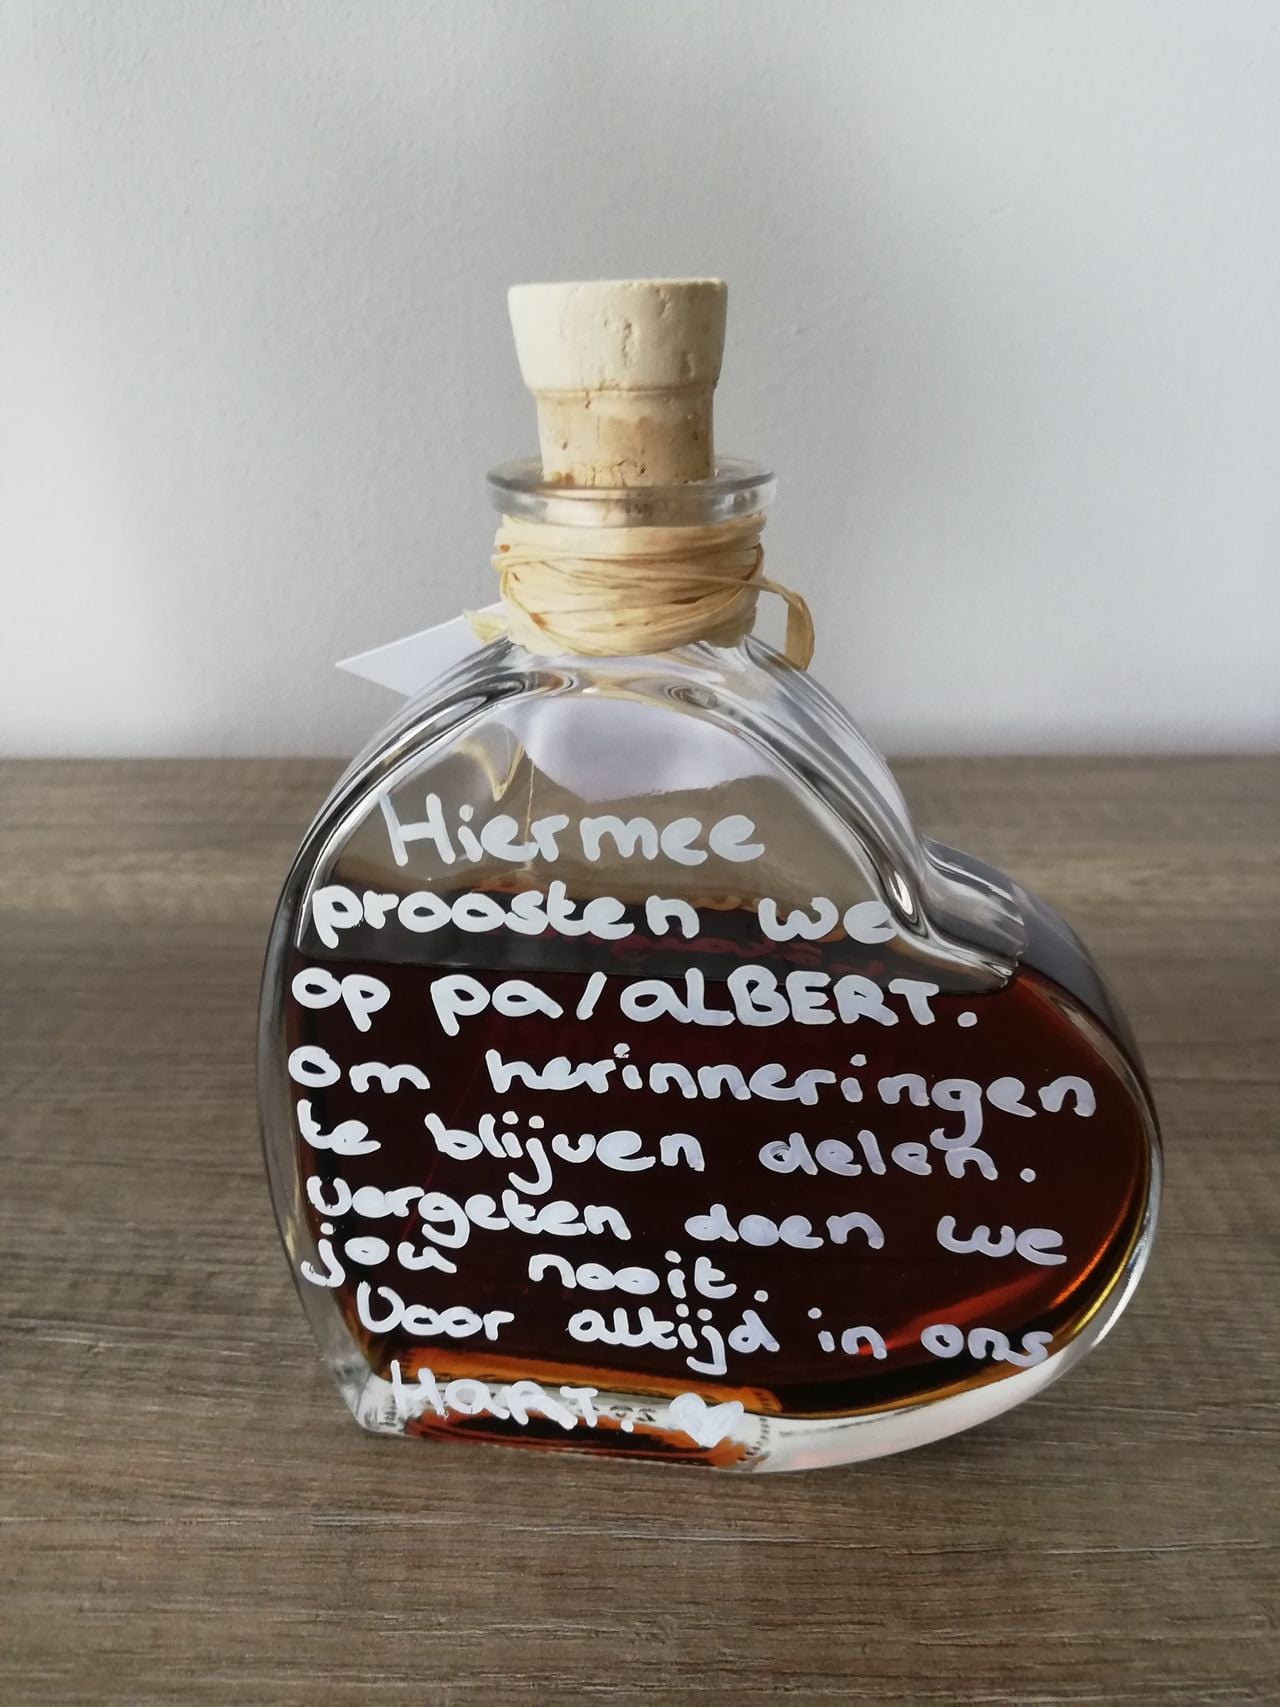 Hiermee
proosten we
op pa/ALBERT.
Om herinneringen
te blijven delen.
vergeten doen we
jou nooit.
Voor altijd in ons
HART. ♡